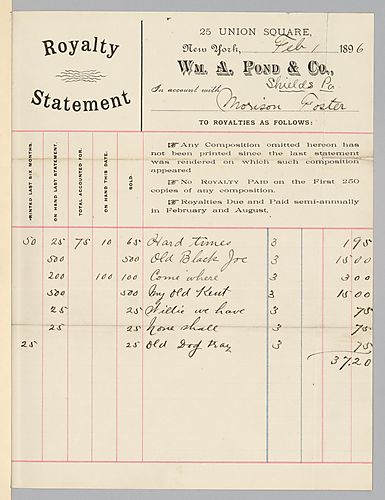 Royalty
Statement
25 UNION SQUARE,
New York, Feb 1 1896
WM. A. POND & CO.,
Shields Pa.
In account with Morison Foster
TO ROYALTIES AS FOLLOWS:
☞ Any Composition omitted hereon has
not been printed since the last statement
was rendered on which such composition
appeared
☞ No ROYALTY PAID on the First 250
copies of any composition.
☞ Royalties Due and Paid semi-annually
in February and August.
PRINTED LAST SIX MONTHS.
ON HAND LAST STATEMENT.
TOTAL ACCOUNTED FOR.
ON HAND THIS DATE.
SOLD.
50 25 75 10 65 Hard times 3 195
500 500 Old Black Joe 3 1500
200 100 100 Come where 3 300
500 500 My Old Kent 3 1500
25 25 Willie we have 3 75
25 25 None shall 3 75
25 25 Old Dog Tray 3 75
37.20